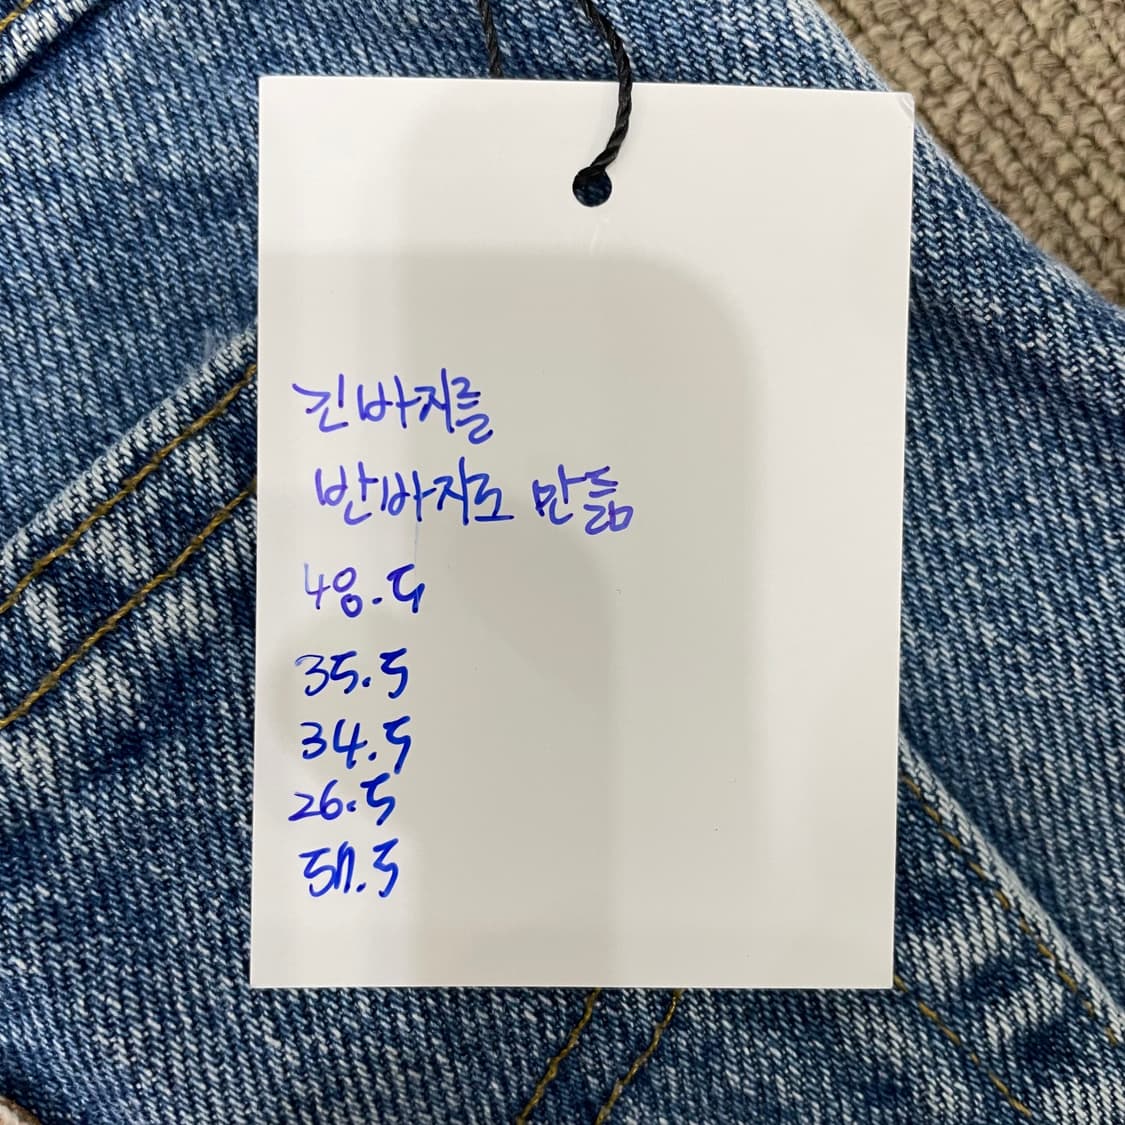 긴바지를
반바지로 만듦
48.5
35.5
34.5
26.5
57.5